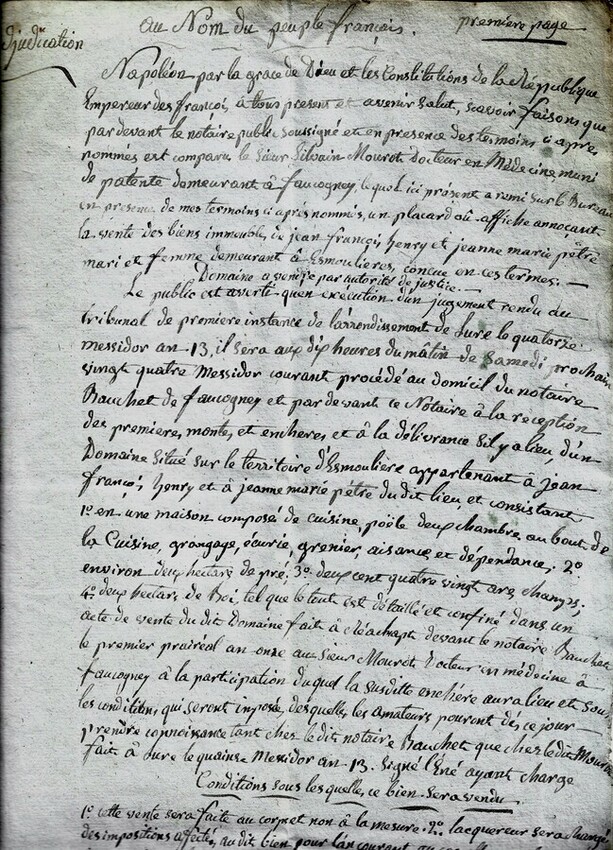 au Nom du peuple françois.
premiere page
djudication
Napoléon par la grace de Dieu et les Constitutions de la République
Empereur des françois, à tous present et avenir salut, scavoir faisons que
pardevant le notaire public soussigné et en presence des temoins ci apres
nommés est comparu le Sieur Silvain Mourot Docteur en Medecine muni
de patente demeurant à faucogney, lequel ici présent a remi sur le Bureau
en presence de mes temoins ci après nommés, un placard ou affiche annoçant
la vente des biens immeuble, de jean françois henry et jeanne marie pêtre
mari et femme demeurant à Esmoulieres, concue en ces termes. —
Domaine a vendre par autorité de justice. —
Le public est averti qu'en execution d'un jugement rendu au
tribunal de premiere instance de l'arrondissement de Lure le quatorze
messidor an 13, il sera aux dix heures du mâtin de Samedi prochai
vingt quatre Messidor courant procédé au domicil du notaire
Bauchet de faucogney et par devant ce Notaire à la reception
des premieres, montes, et encheres, et à la délivrance s'il y a lieu, d'un
Domaine situé sur le territoire d'Esmouliere appartenant à jean
françois henry et à jeanne marie pêtre du dit lieu, et consistant
1.º en une maison composé de cuisine, poële deux chambre, au bout de
la Cuisine, grangage, écurie, grenier, aisance, et dépendance, 2.º
environ deux hectars de pré, 3.º deux cent quatre vingt ars champs,
4.º deux hectars de Boi, tel que le tout est détaillé et confiné dans un
acte de vente du dit Domaine fait à Réachapt devant le notaire Bauchet
le premier prairéal an onze au Sieur Mourot Docteur en médecine à
faucogney à la participation du quel la susditte enchère aura lieu et sous
les conditions, qui seront imposée, desquelles, les amateurs pouront dès, ce jour
prendre connoissance tant chez le dit notaire Bauchet que chez le dit Mourot
fait à Lure le quainse Messidor an 13. signé ayant charge
Conditions sous lesquelles, ce bien sera vendu
1.º cette vente sera faite au corps et non à la mesure. 2.º l'acquereur sera chargé
des impositions affecté, au dit bien pour l'an courant